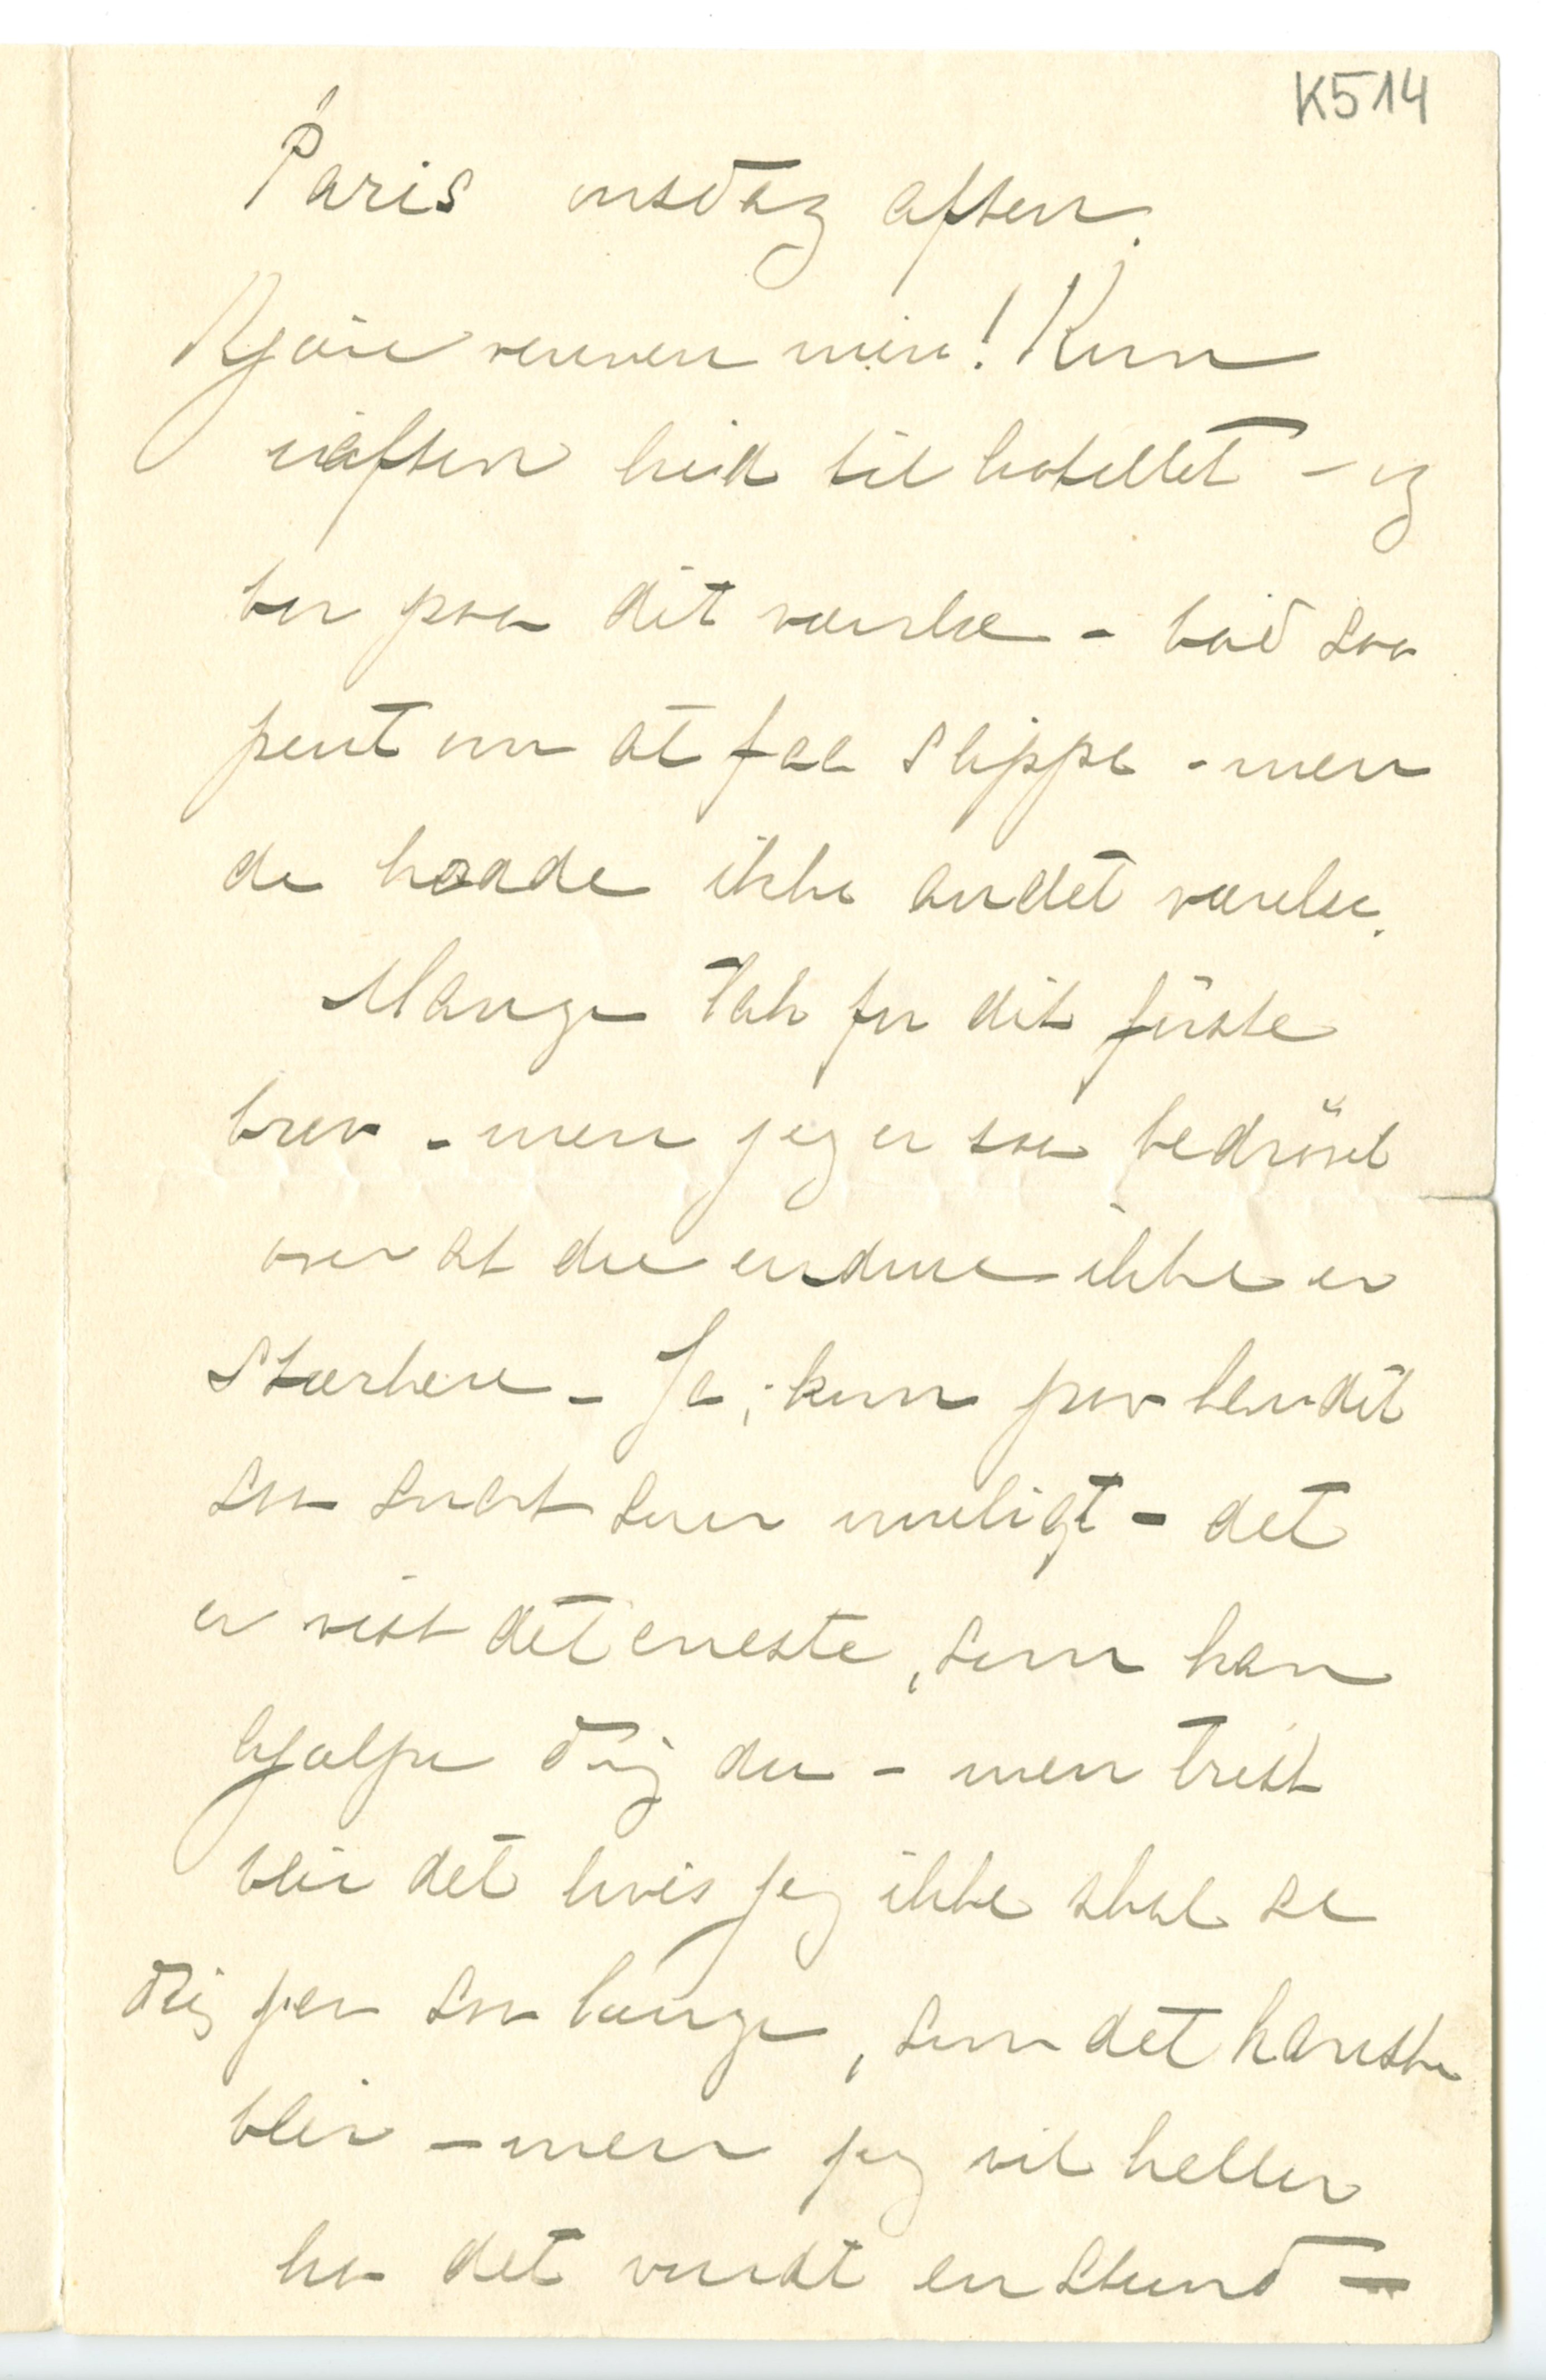 K514
Paris onsdag aften.
Kjære vennen min! Kom
iaften hid til hotellet – og
bor paa dit værelse – bad saa
pent om at faa slippe – men
de havde ikke andet værelse.
Mange tak for dit første
brev – men jeg er saa bedrövet
over at du endnu ikke er
stærkere – Ja, kom paa landet
saa snart som muligt – det
er vist det eneste, som kan
hjælpe dig du – men trist
blir det hvis jeg ikke skal se
dig paa saa længe, som det kanske
blir – men jeg vil heller
ha det vondt en stund –